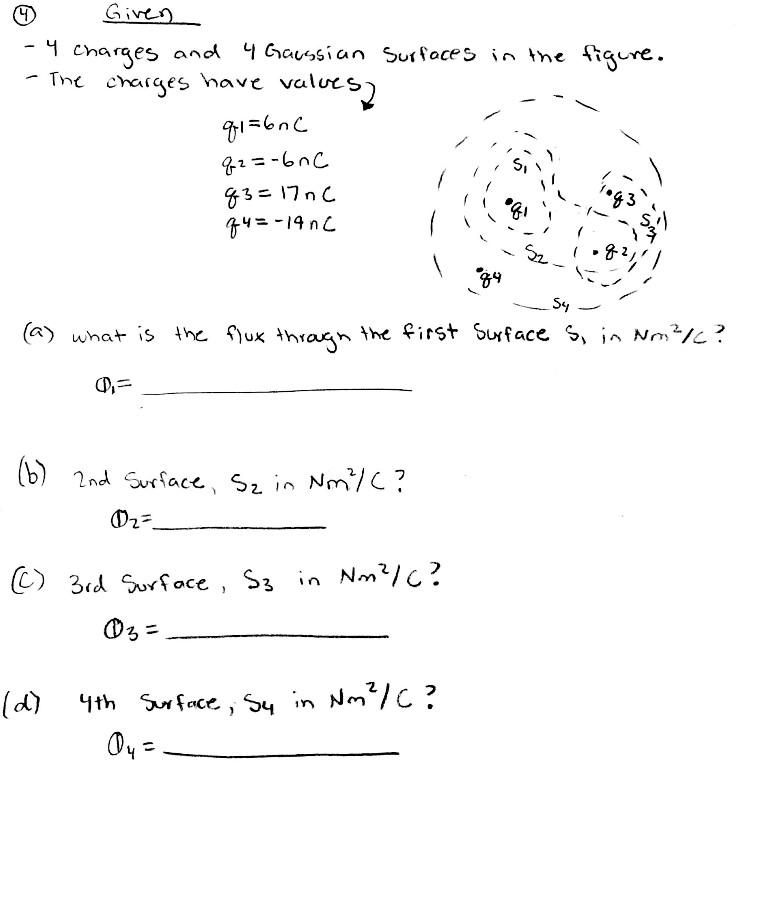 ④ Given
- 4 charges and 4 Gaussian surfaces in the figure.
- The charges have values
q1=6nC
q2=-6nC
q3=17nC
q4=-19nC
S1
q1
q3
S3
S2
q2
q4
S4
(a) what is the flux through the first surface S1 in Nm²/C?
Φ1= ____________
(b) 2nd surface, S2 in Nm²/C?
Φ2= ____________
(c) 3rd surface, S3 in Nm²/C?
Φ3 = ____________
(d) 4th surface, S4 in Nm²/C?
Φ4 = ____________